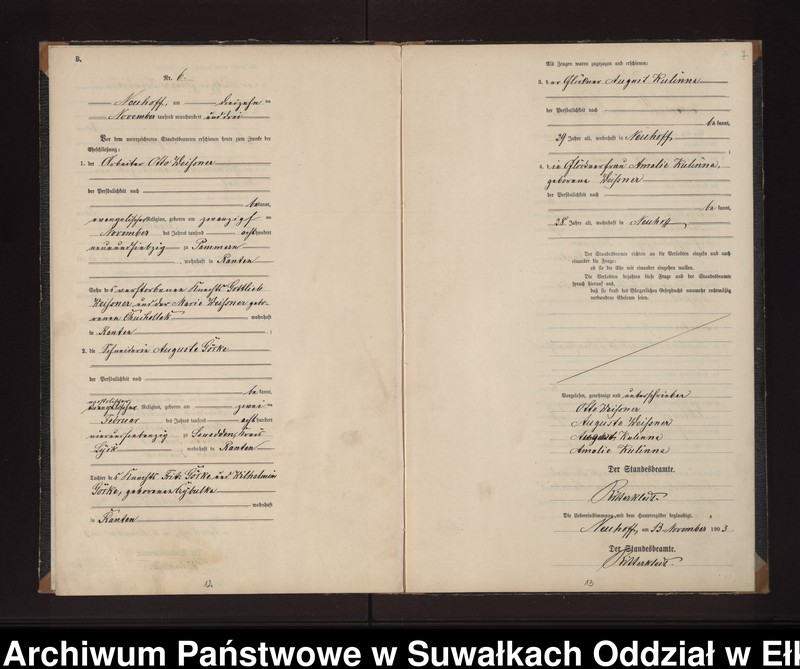 B.
Nr. 6.
Neuhoff, am dreizehn ten
November tausend neunhundert und drei
Vor dem unterzeichneten Standesbeamten erschienen heute zum Zwecke der
Eheschließung:
1. der Arbeiter Otto Weißner
der Persönlichkeit nach
be kannt,
evangelischer Religion, geboren am zwanzigsten
November des Jahres tausend acht hundert
neunundsiebzig zu Pammern
, wohnhaft in Ranten
Sohn des verstorbenen Knechts Gottlieb
Weißner und der Marie Weißner gebo-
renen
wohnhaft
in Ranten ;
2. die Schneiderin Auguste Görke
der Persönlichkeit nach
be kannt,
evangelischer Religion, geboren am zwei ten
Februar des Jahres tausend acht hundert
vierundsiebenzig zu Kreis
Lyck , wohnhaft in Ranten
Tochter des Knechts Fritz Görke und Wilhelmine
Görke, geborenen Cybulka
wohnhaft
in Ranten
12
Als Zeugen waren zugezogen und erschienen:
3. der Glöckner August Kulinna
der Persönlichkeit nach
be kannt,
29 Jahre alt, wohnhaft in Neuhoff,
;
4. die Glöcknerfrau Amalie Kulinna,
geborene Weißner
der Persönlichkeit nach
be kannt,
28 Jahre alt, wohnhaft in Neuhoff
Der Standesbeamte richtete an die Verlobten einzeln und nach
einander die Frage:
ob sie die Ehe mit einander eingehen wollen.
Die Verlobten bejahten diese Frage und der Standesbeamte
sprach hierauf aus,
daß sie kraft des Bürgerlichen Gesetzbuchs nunmehr rechtmäßig
verbundene Eheleute seien.
Vorgelesen, genehmigt und unterschrieben
Otto Weißner
Auguste Weißner
August Kulinna
Amalie Kulinna
Der Standesbeamte.
Die Uebereinstimmung mit dem Hauptregister beglaubigt.
Neuhoff, am 13 November 1903.
Der Standesbeamte.
13
Archiwum Państwowe w Suwałkach Oddział w Ełk